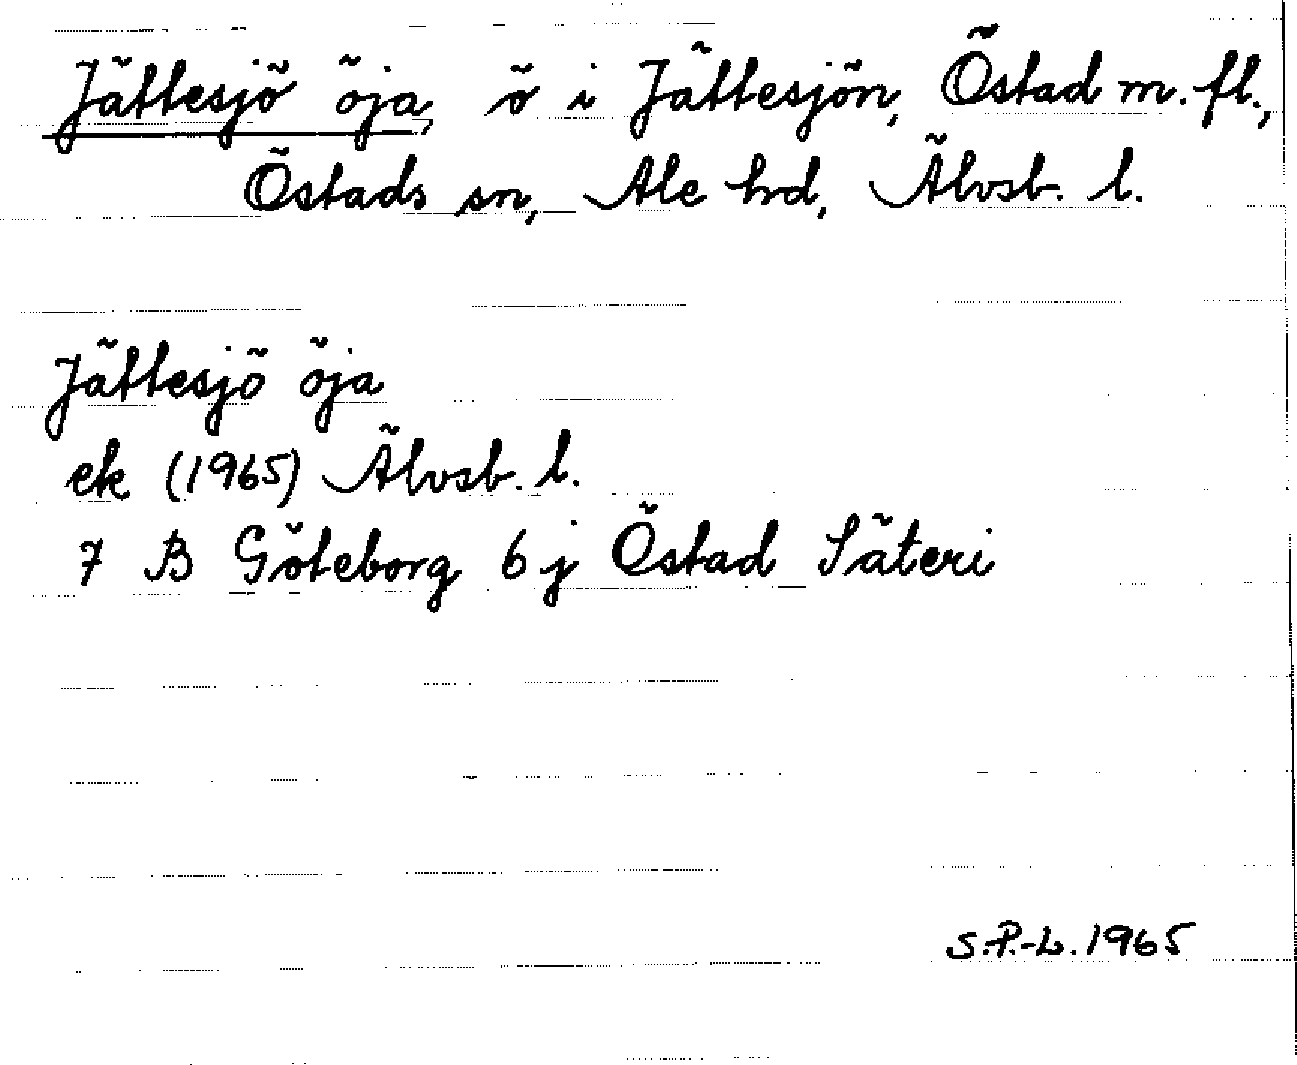 Jättesjö öja, ö i Jättesjön, Östad m. fl.,
Östads sn, Ale hrd, Älvsb. l.
Jättesjö öja
ek (1965) Älvsb. l.
7 B Göteborg 6 j Östad Säteri
S.P.-L. 1965